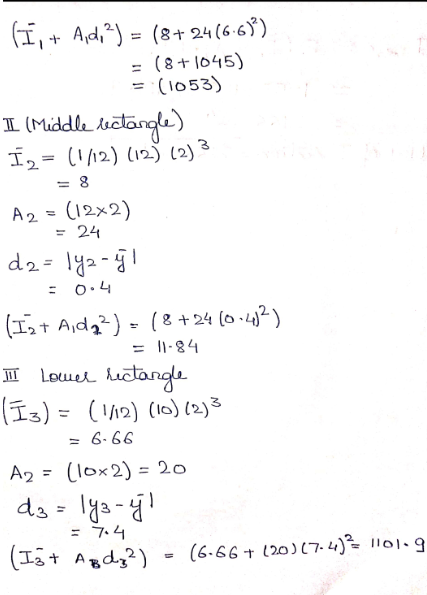 (Ī₁ + A₁d₁²) = (8 + 24(6.6)²)
= (8 + 1045)
= (1053)
II (Middle rectangle)
Ī₂ = (1/12) (12) (2)³
= 8
A₂ = (12×2)
= 24
d₂ = |y₂ - ȳ|
= 0.4
(Ī₂ + A₁d₂²) = (8 + 24 (0.4)²)
= 11.84
III Lower rectangle
(Ī₃) = (1/12) (10) (2)³
= 6.66
A₂ = (10×2) = 20
d₃ = |y₃ - ȳ|
= 7.4
(Ī₃ + A₃d₃²) = (6.66 + (20) (7.4)² = 1101.9